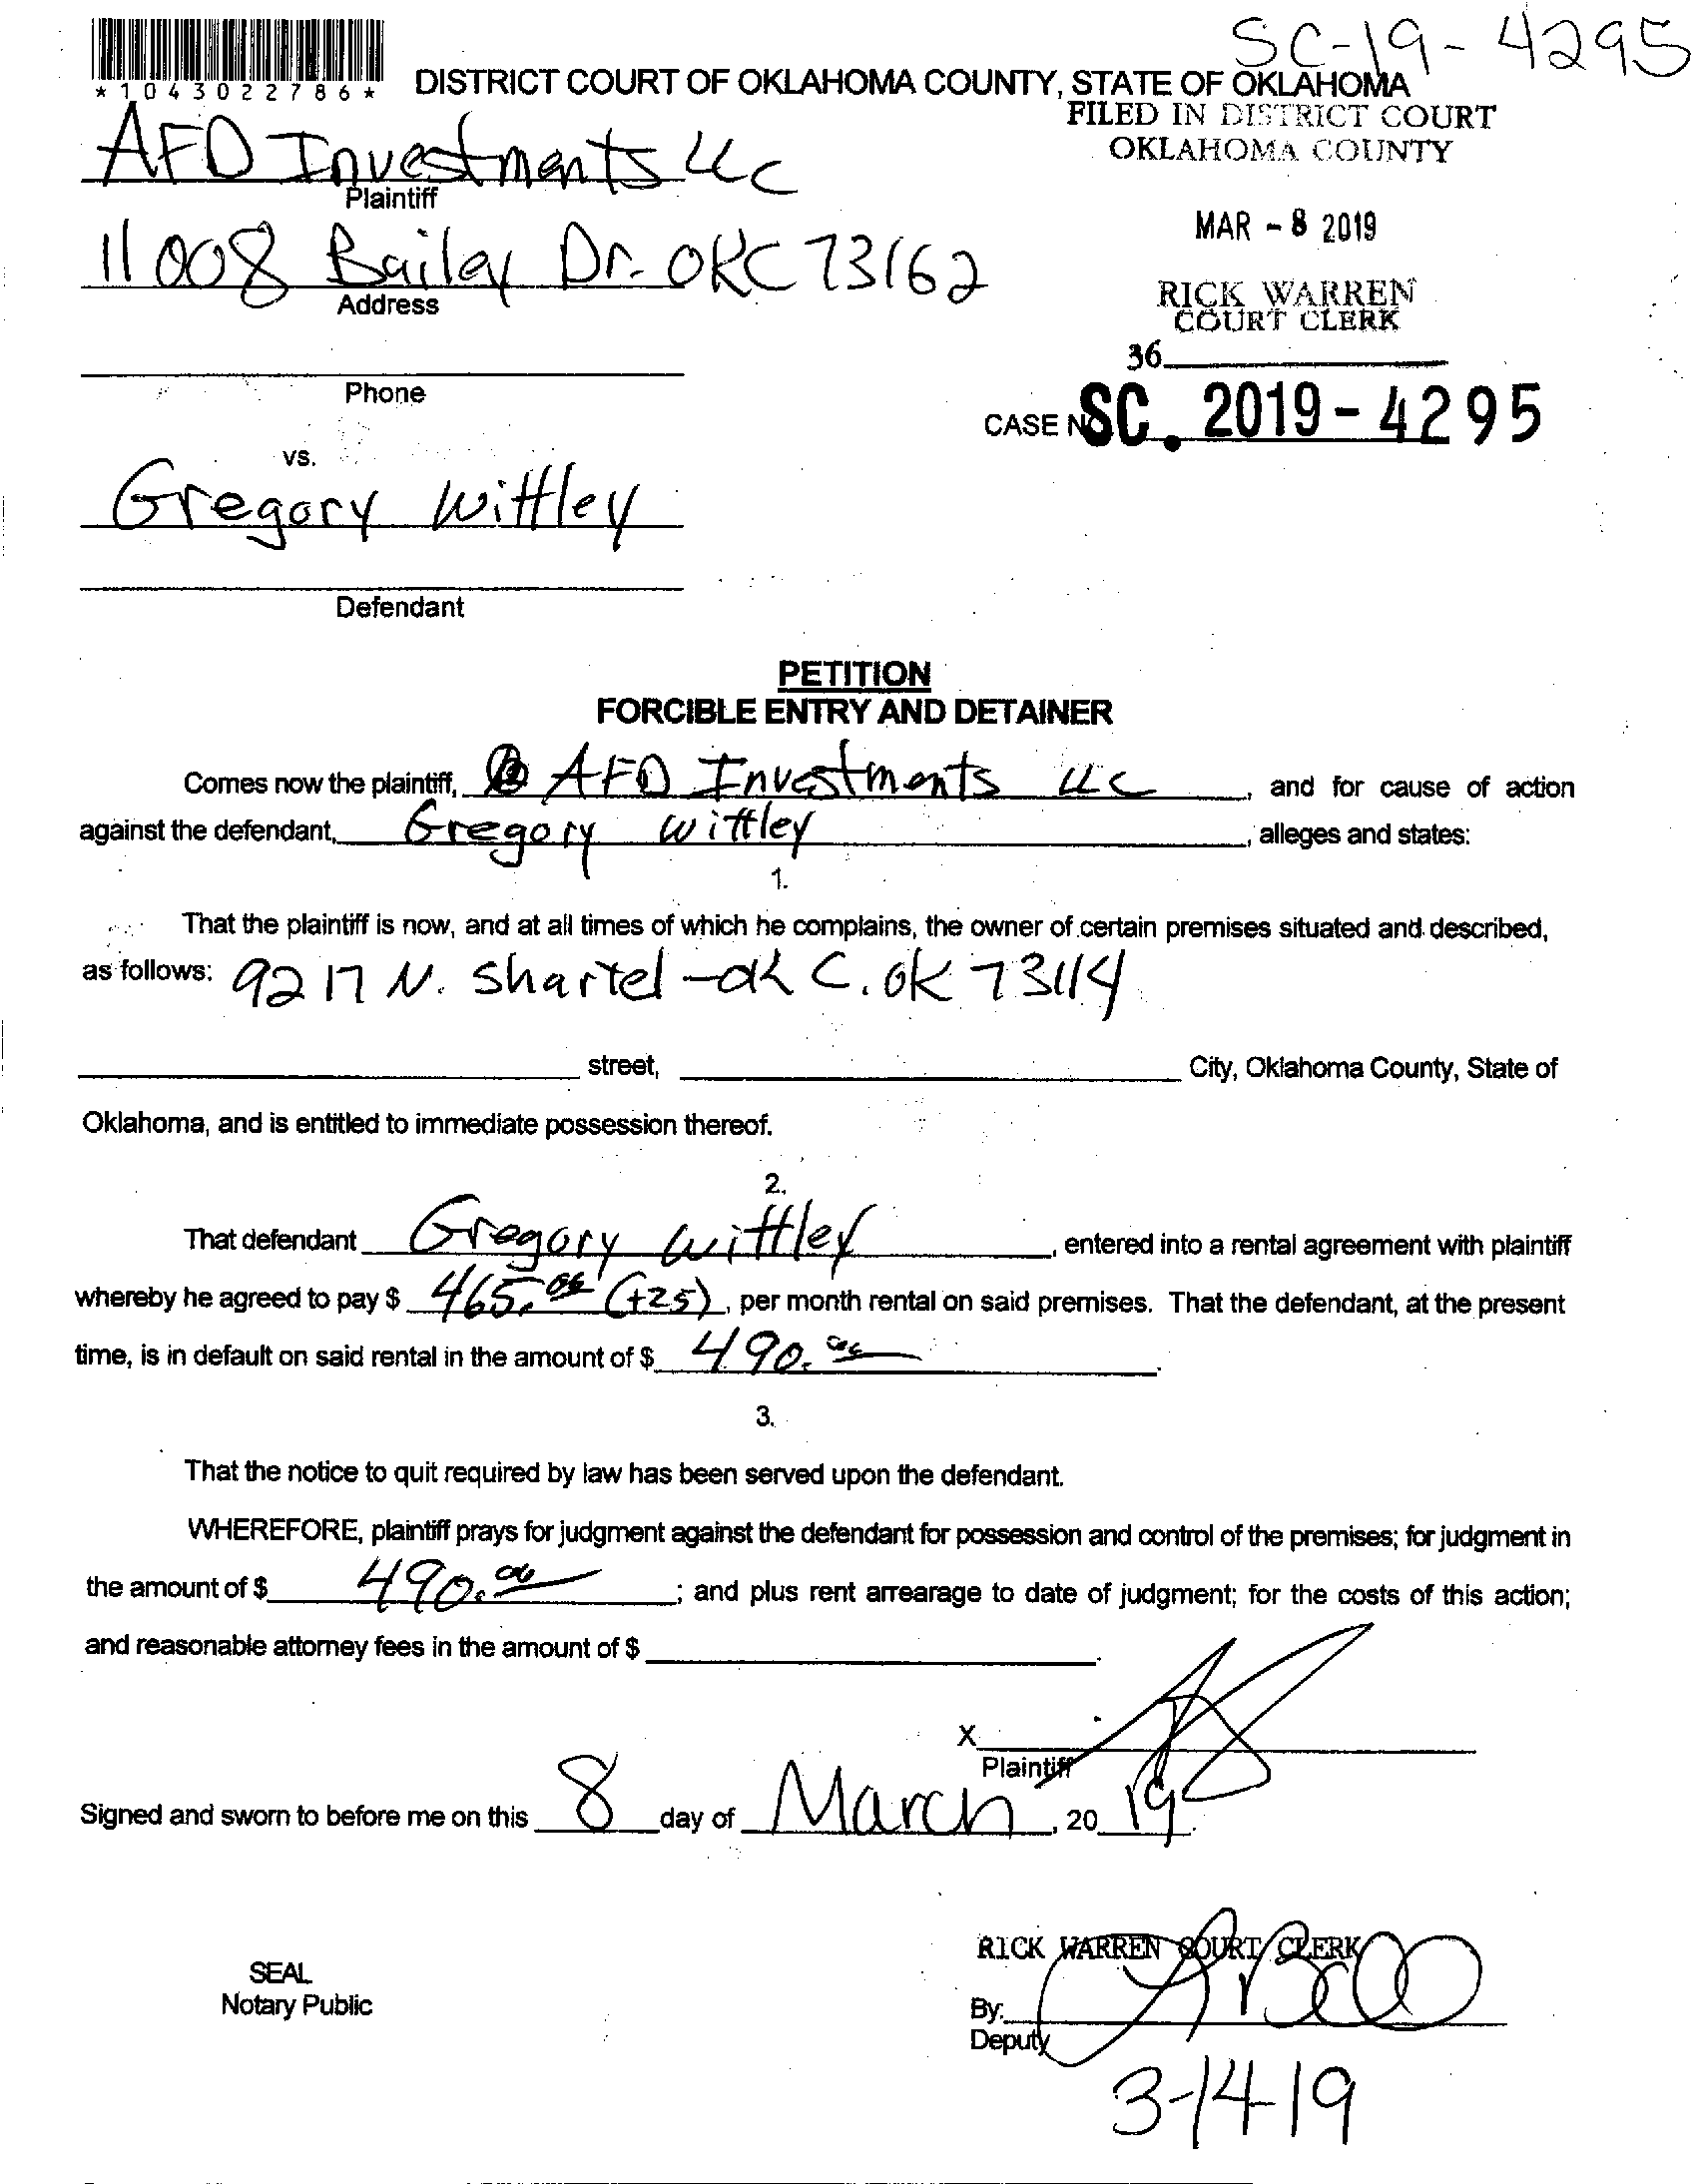 SC-19-4295
*1043022786*
DISTRICT COURT OF OKLAHOMA COUNTY, STATE OF OKLAHOMA
FILED IN DISTRICT COURT
OKLAHOMA COUNTY
AFD Investments LLC
Plaintiff
MAR - 8 2019
11008 Bailey Dr. OKC 73162
Address
RICK WARREN
COURT CLERK
36
Phone
CASE NO. SC 2019-4295
vs.
Gregory Wittley
Defendant
PETITION
FORCIBLE ENTRY AND DETAINER
Comes now the plaintiff, AFD Investments LLC, and for cause of action
against the defendant, Gregory Wittley, alleges and states:
1.
That the plaintiff is now, and at all times of which he complains, the owner of certain premises situated and described,
as follows: 9217 N. Shartel - OK C. OK 73114
street, City, Oklahoma County, State of
Oklahoma, and is entitled to immediate possession thereof.
2.
That defendant Gregory Wittley, entered into a rental agreement with plaintiff
whereby he agreed to pay $ 465.00 (+25), per month rental on said premises. That the defendant, at the present
time, is in default on said rental in the amount of $ 490.00.
3.
That the notice to quit required by law has been served upon the defendant.
WHEREFORE, plaintiff prays for judgment against the defendant for possession and control of the premises; for judgment in
the amount of $ 490.00; and plus rent arrearage to date of judgment; for the costs of this action;
and reasonable attorney fees in the amount of $ .
X
Plaintiff
Signed and sworn to before me on this 8 day of March, 20 19.
RICK WARREN COURT CLERK
SEAL
Notary Public
By:
Deputy
3-14-19